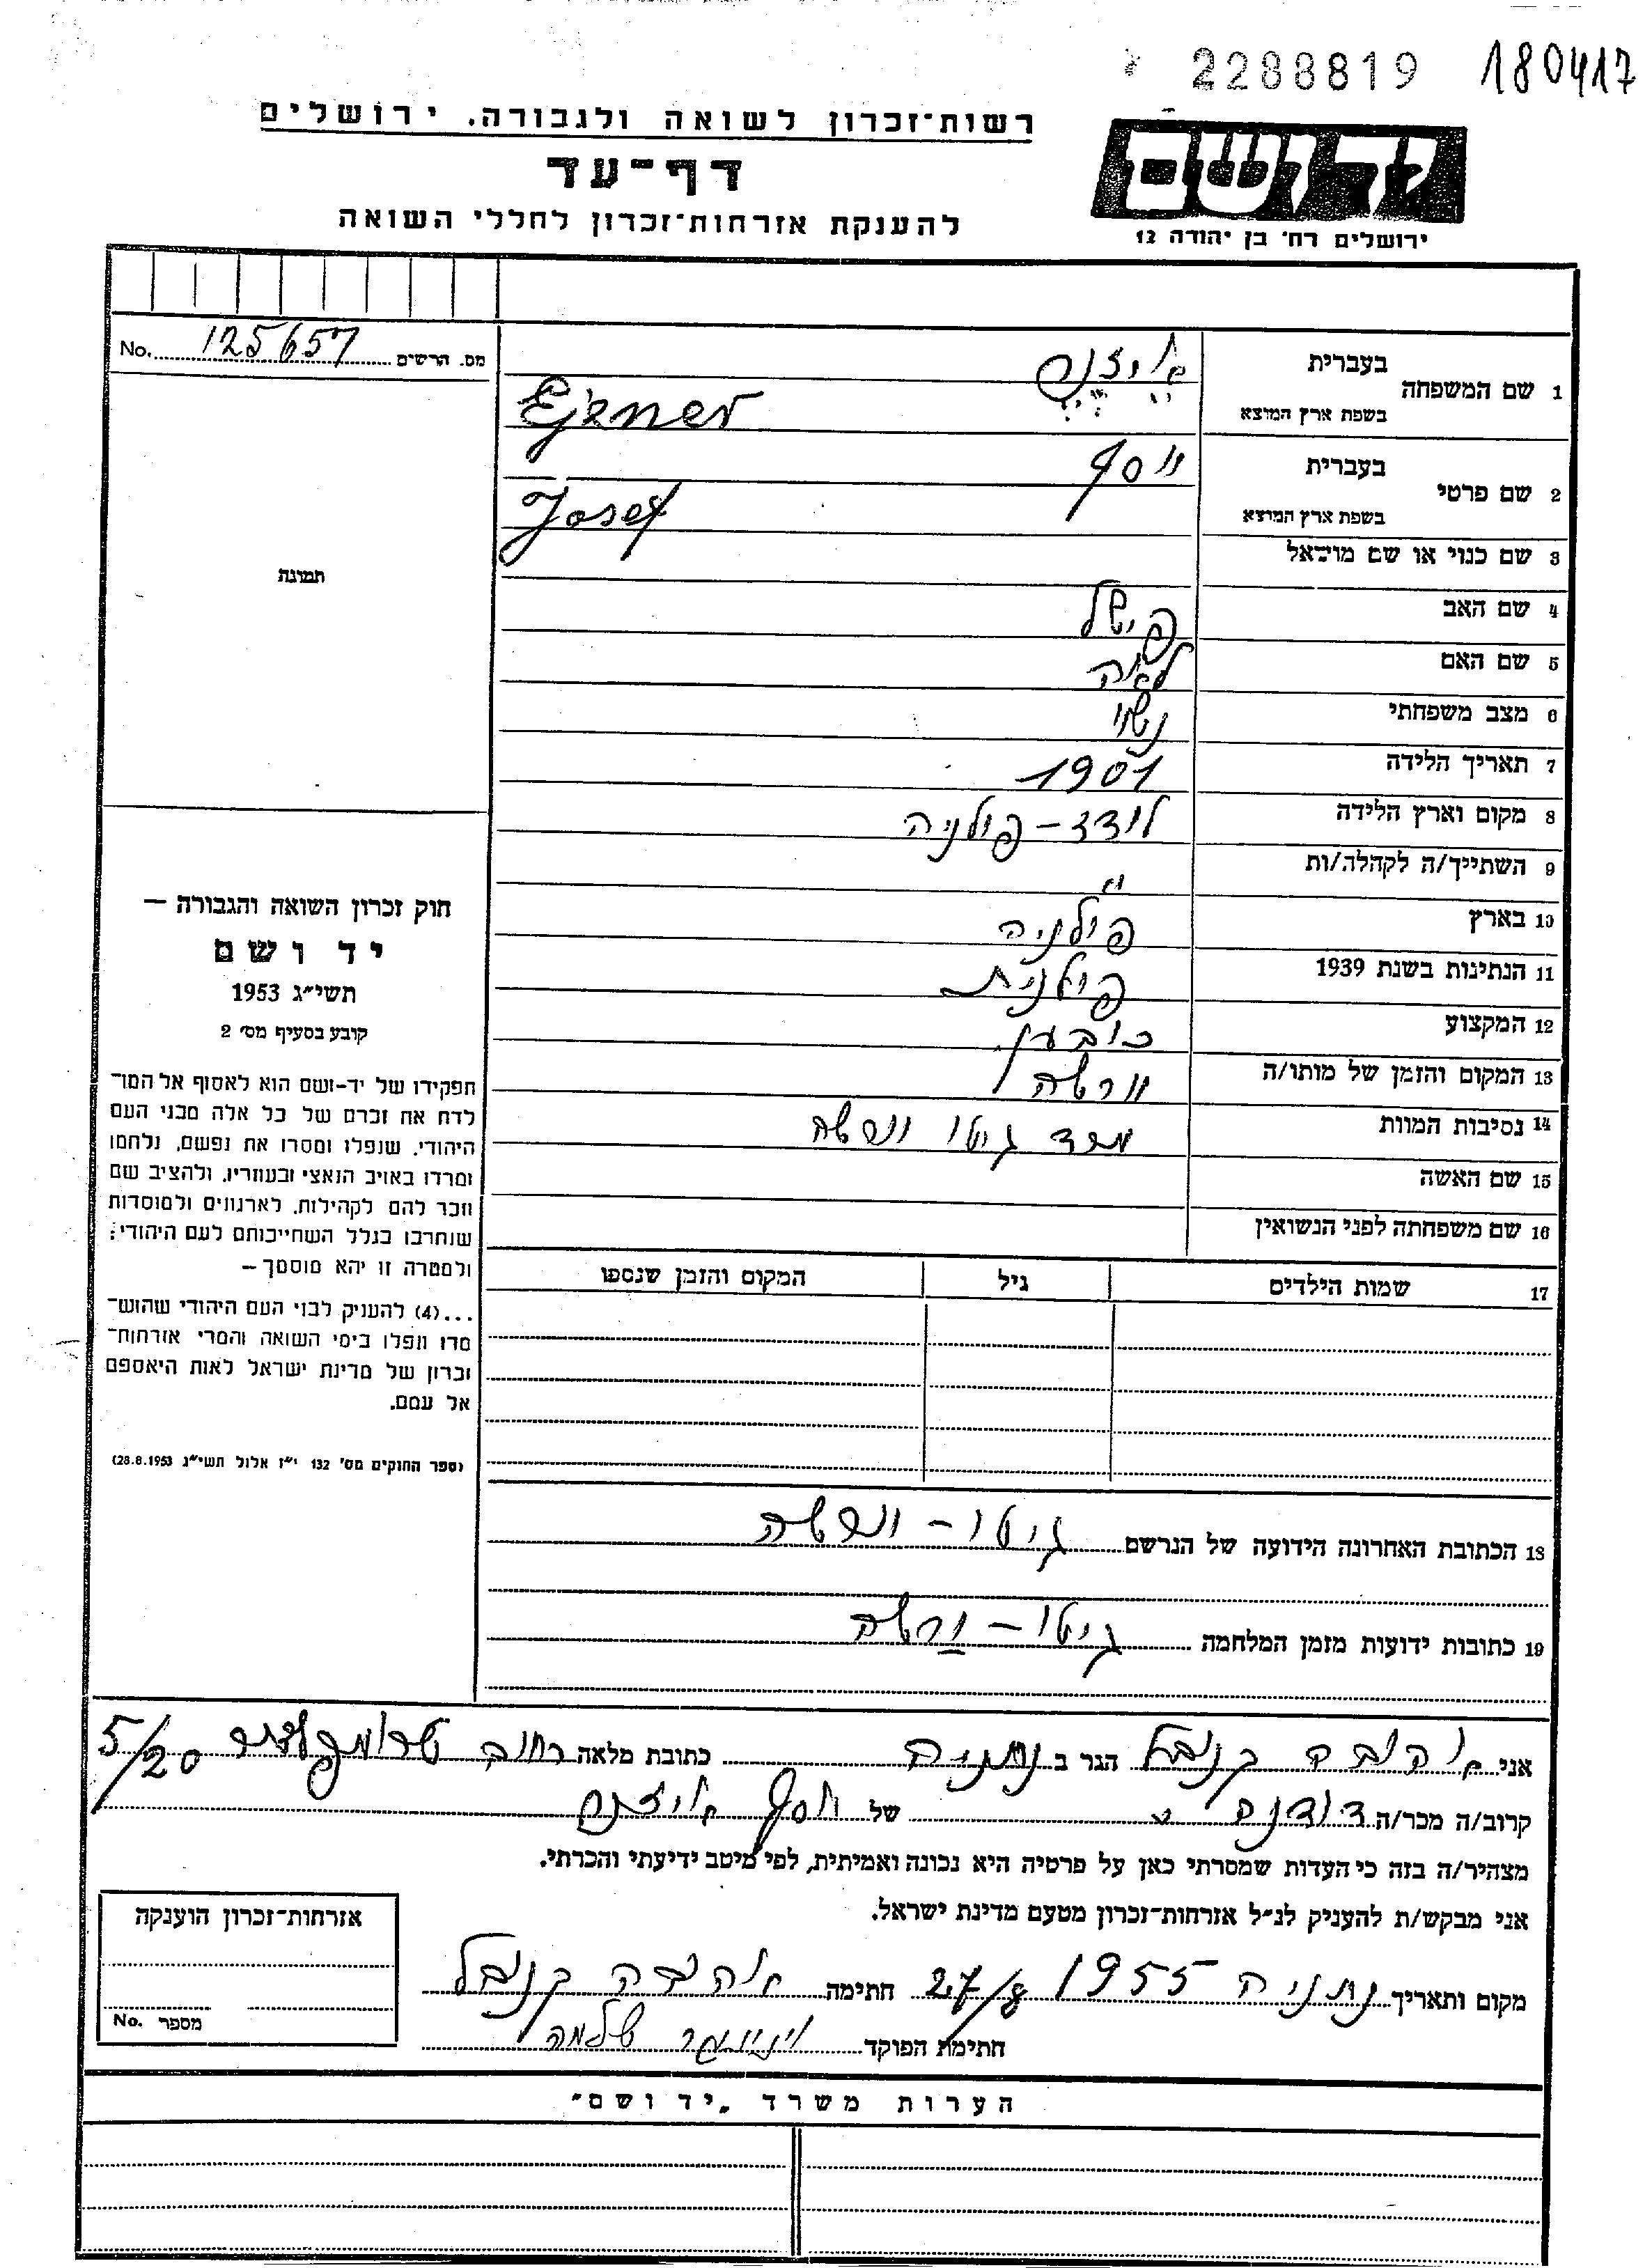 2288819 180417
רשות־זכרון לשואה ולגבורה, ירושלים
דף־עד
להענקת אזרחות־זכרון לחללי השואה
יד ושם
ירושלים רח׳ בן יהודה 12
מס. הרשים 125657 No.
תמונה
חוק זכרון השואה והגבורה —
יד ושם
תשי״ג 1953
קובע בסעיף מס׳ 2
תפקידו של יד-ושם הוא לאסוף אל המו־
לדת את זכרם של כל אלה מבני העם
היהודי, שנפלו ומסרו את נפשם, נלחמו
ומרדו באויב הנאצי ובעוזריו, ולהציב שם
וזכר להם לקהילות, לארגונים ולמוסדות
שנחרבו בגלל השתייכותם לעם היהודי;
ולמטרה זו יהא מוסמך —
...(4) להעניק לבני העם היהודי שהוש־
מדו ונפלו בימי השואה והמרי אזרחות־
זכרון של מדינת ישראל לאות היאספם
אל עמם.
(ספר החוקים מס׳ 132 י״ז אלול תשי״ג 28.8.1953)
1 שם המשפחה בעברית אייזנר
בשפת ארץ המוצא Ejzner
2 שם פרטי בעברית יוסף
בשפת ארץ המוצא Josef
3 שם כנוי או שם מושאל
4 שם האב פישל
5 שם האם לאה
6 מצב משפחתי נשוי
7 תאריך הלידה 1901
8 מקום וארץ הלידה לודז – פולניה
9 השתייך/ה לקהלה/ות "
10 בארץ פולניה
11 הנתינות בשנת 1939 פולנית
12 המקצוע כובען
13 המקום והזמן של מותו/ה וורשה
14 נסיבות המוות מרד גיטו ורשה
15 שם האשה
16 שם משפחתה לפני הנשואין
17 שמות הילדים גיל המקום והזמן שנספו
18 הכתובת האחרונה הידועה של הנרשם גיטו – ורשה
19 כתובות ידועות מזמן המלחמה גיטו – ורשה
אני אהובה קנובל הגר ב נתניה כתובת מלאה רחוב טרומפלדור 5/20
קרוב/ה מכר/ה דודנה של יוסף אייזנר
מצהיר/ה בזה כי העדות שמסרתי כאן על פרטיה היא נכונה ואמיתית, לפי מיטב ידיעתי והכרתי.
אני מבקש/ת להעניק לנ״ל אזרחות־זכרון מטעם מדינת ישראל.
מקום ותאריך נתניה 27/8 1955 חתימה אהובה קנובל
חתימת הפוקד שלמה
אזרחות־זכרון הוענקה
מספר No.
הערות משרד „יד ושם״